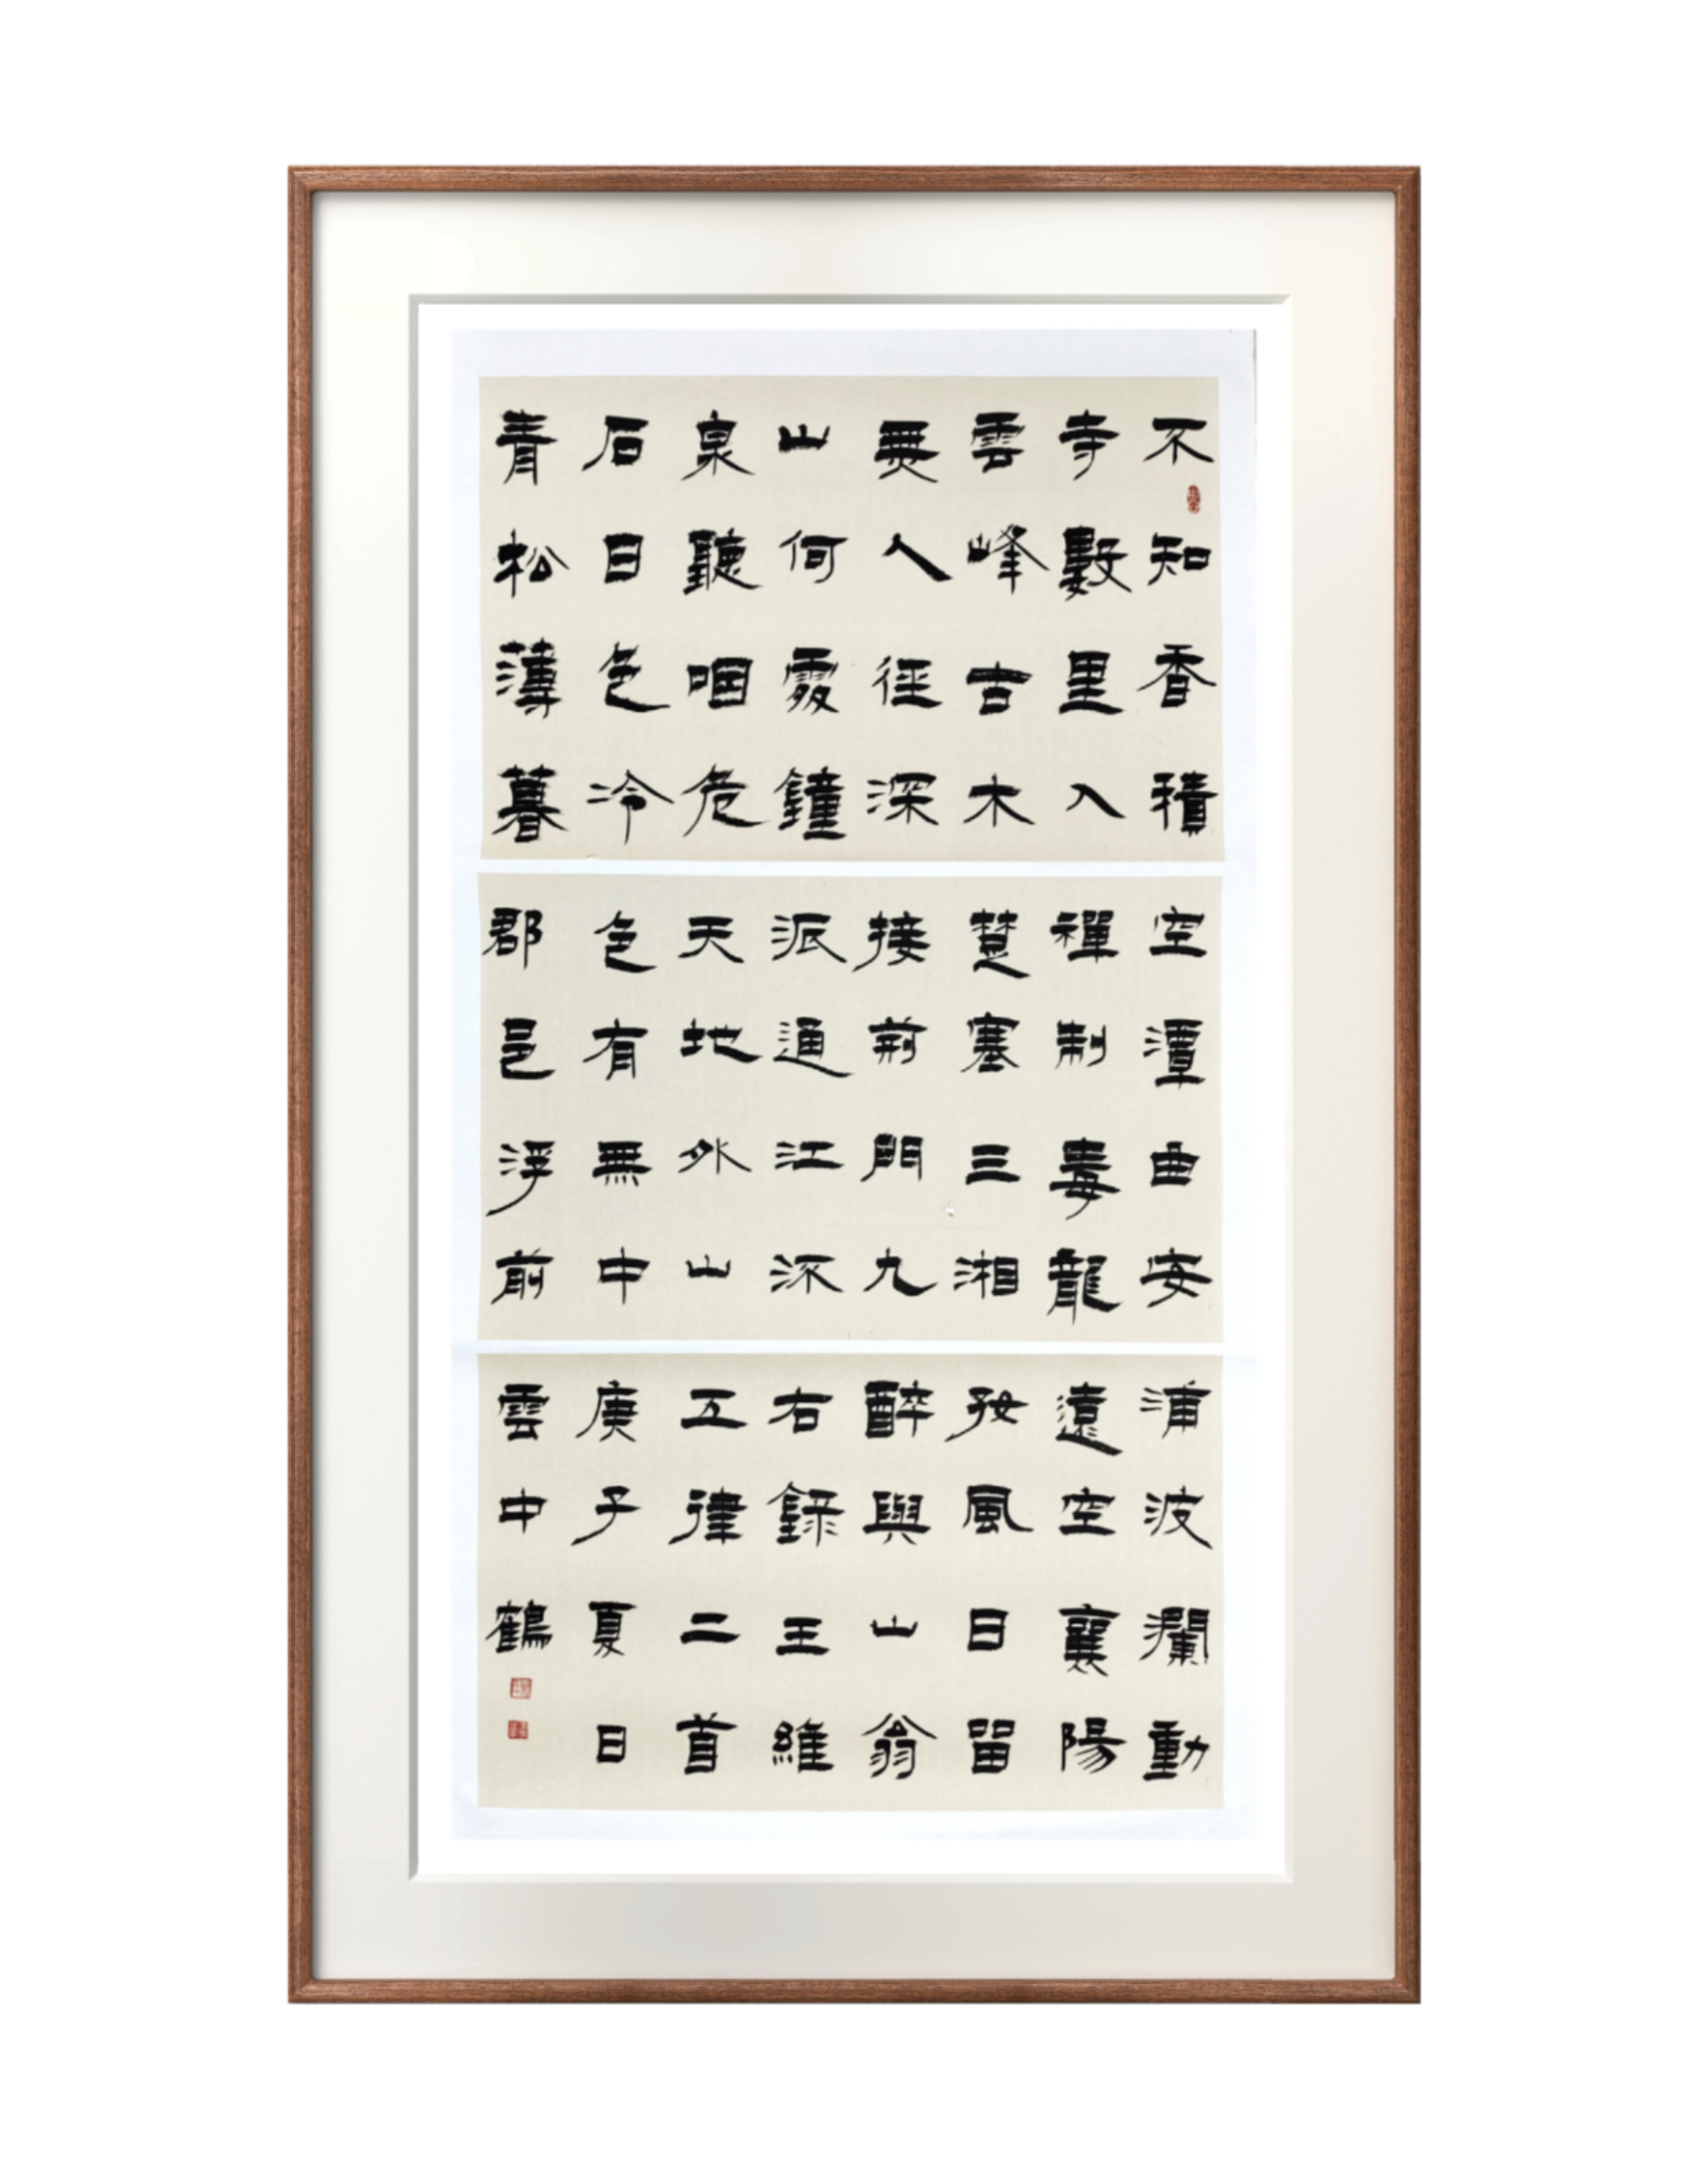 不知香積
寺數里入
雲峰古木
無人徑深
山何處鐘
泉聽咽危
石日色冷
青松薄暮
空潭曲安
禪制毒龍
楚塞三湘
接荊門九
派通江流
天地外山
色有無中
郡邑浮前
浦波瀾動
遠空襄陽
好風日留
醉與山翁
右錄王維
五律二首
庚子夏日
雲中鶴